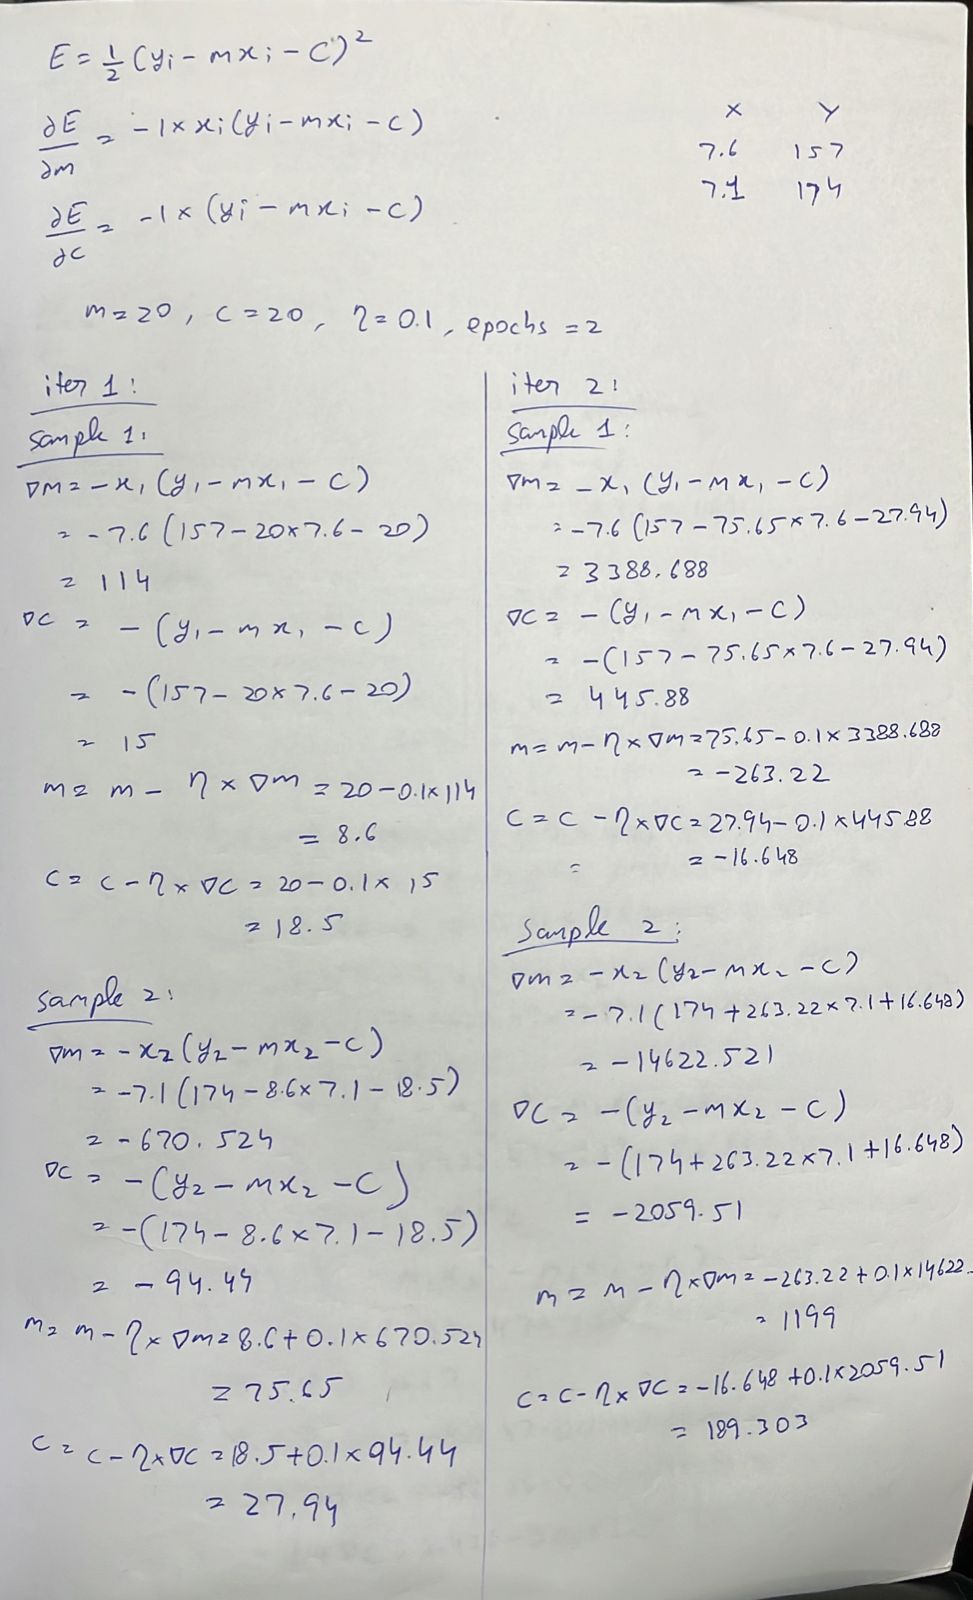 E = 1/2 (yi - mxi - c)²
∂E/∂m = -1 × xi (yi - mxi - c)
∂E/∂c = -1 × (yi - mxi - c)
X Y
7.6 157
7.1 174
m = 20, c = 20, η = 0.1, epochs = 2
iter 1:
Sample 1:
∇m = -x1 (y1 - mx1 - c)
= -7.6 (157 - 20×7.6 - 20)
= 114
∇c = -(y1 - mx1 - c)
= -(157 - 20×7.6 - 20)
= 15
m = m - η × ∇m = 20 - 0.1×114
= 8.6
c = c - η × ∇c = 20 - 0.1 × 15
= 18.5
Sample 2:
∇m = -x2 (y2 - mx2 - c)
= -7.1 (174 - 8.6×7.1 - 18.5)
= -670.524
∇c = -(y2 - mx2 - c)
= -(174 - 8.6×7.1 - 18.5)
= -94.44
m = m - η × ∇m = 8.6 + 0.1 × 670.524
= 75.65
c = c - η × ∇c = 18.5 + 0.1 × 94.44
= 27.94
iter 2:
Sample 1:
∇m = -x1 (y1 - mx1 - c)
= -7.6 (157 - 75.65×7.6 - 27.94)
= 3388.688
∇c = -(y1 - mx1 - c)
= -(157 - 75.65×7.6 - 27.94)
= 445.88
m = m - η × ∇m = 75.65 - 0.1 × 3388.688
= -263.22
c = c - η × ∇c = 27.94 - 0.1 × 445.88
= = -16.648
Sample 2:
∇m = -x2 (y2 - mx2 - c)
= -7.1 (174 + 263.22×7.1 + 16.648)
= -14622.521
∇c = -(y2 - mx2 - c)
= -(174 + 263.22×7.1 + 16.648)
= -2059.51
m = m - η × ∇m = -263.22 + 0.1 × 14622.
= 1199
c = c - η × ∇c = -16.648 + 0.1×2059.51
= 189.303